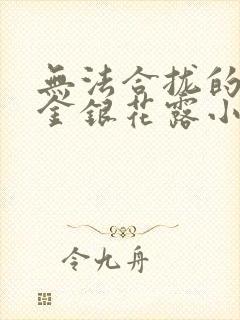 無法合拢的
金銀花露小
令九舟